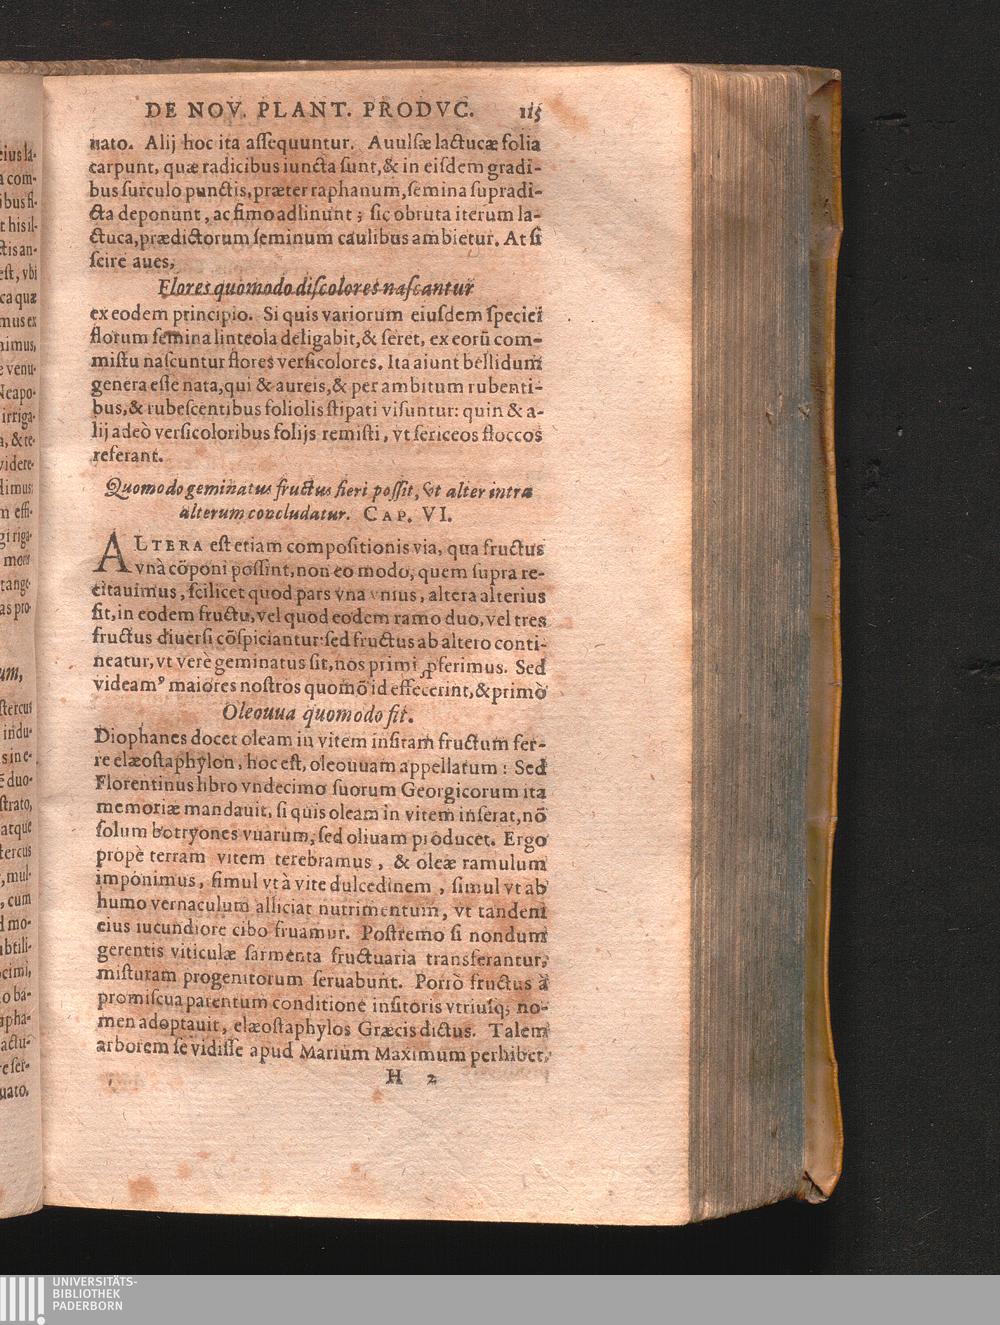 DE NOV. PLANT. PRODVC. 115
nato. Alij hoc ita aſſequuntur. Auulſæ lactucæ folia
carpunt, quæ radicibus iuncta ſunt, & in eiſdem gradi-
bus ſurculo punctis, præter raphanum, ſemina ſupradi-
cta deponunt, ac fimo adlinunt; ſic obruta iterum la-
ctuca, prædictorum ſeminum caulibus ambietur. At ſi
ſcire aues,
Flores quomodo diſcolores naſcantur
ex eodem principio. Si quis variorum eiuſdem ſpeciei
florum ſemina linteola deligabit, & ſeret, ex eorũ com-
miſtu naſcuntur flores verſicolores. Ita aiunt bellidum
genera eſſe nata, qui & aureis, & per ambitum rubenti-
bus, & rubeſcentibus foliolis ſtipati viſuntur: quin & a-
lij adeò verſicoloribus folijs remiſti, vt ſericeos floccos
referant.
Quomodo geminatus fructus fieri poſſit, & vt alter intra
alterum concludatur. CAP. VI.
ALTERA eſt etiam compoſitionis via, qua fructus
vnà cõponi poſſint, non eo modo, quem ſupra re-
citauimus, ſcilicet quod pars vna vnius, altera alterius
ſit, in eodem fructu, vel quod eodem ramo duo, vel tres
fructus diuerſi cõſpiciantur: ſed fructus ab altero conti-
neatur, vt verè geminatus ſit, nos primi ꝓferimus. Sed
videamꝰ maiores noſtros quomõ id effecerint, & primò
Oleouua quomodo fit.
Diophanes docet oleam in vitem inſitam fructum fer-
re elæoſtaphylon, hoc eſt, oleouuam appellatum: Sed
Florentinus libro vndecimo ſuorum Georgicorum ita
memoriæ mandauit, ſi quis oleam in vitem inſerat, nõ
ſolum botryones vuarum, ſed oliuam producet. Ergo
propè terram vitem terebramus, & oleæ ramulum
imponimus, ſimul vt à vite dulcedinem, ſimul vt ab
humo vernaculum alliciat nutrimentum, vt tandem
eius iucundiore cibo fruamur. Poſtremo ſi nondum
gerentis viticulæ ſarmenta fructuaria transferantur,
miſturam progenitorum ſeruabunt. Porrò fructus à
promiſcua parentum conditione inſitoris vtriuſq; no-
men adoptauit, elæoſtaphylos Græcis dictus. Talem
arborem ſe vidiſſe apud Marium Maximum perhibet,
H 2
UNIVERSITÄTS-
BIBLIOTHEK
PADERBORN